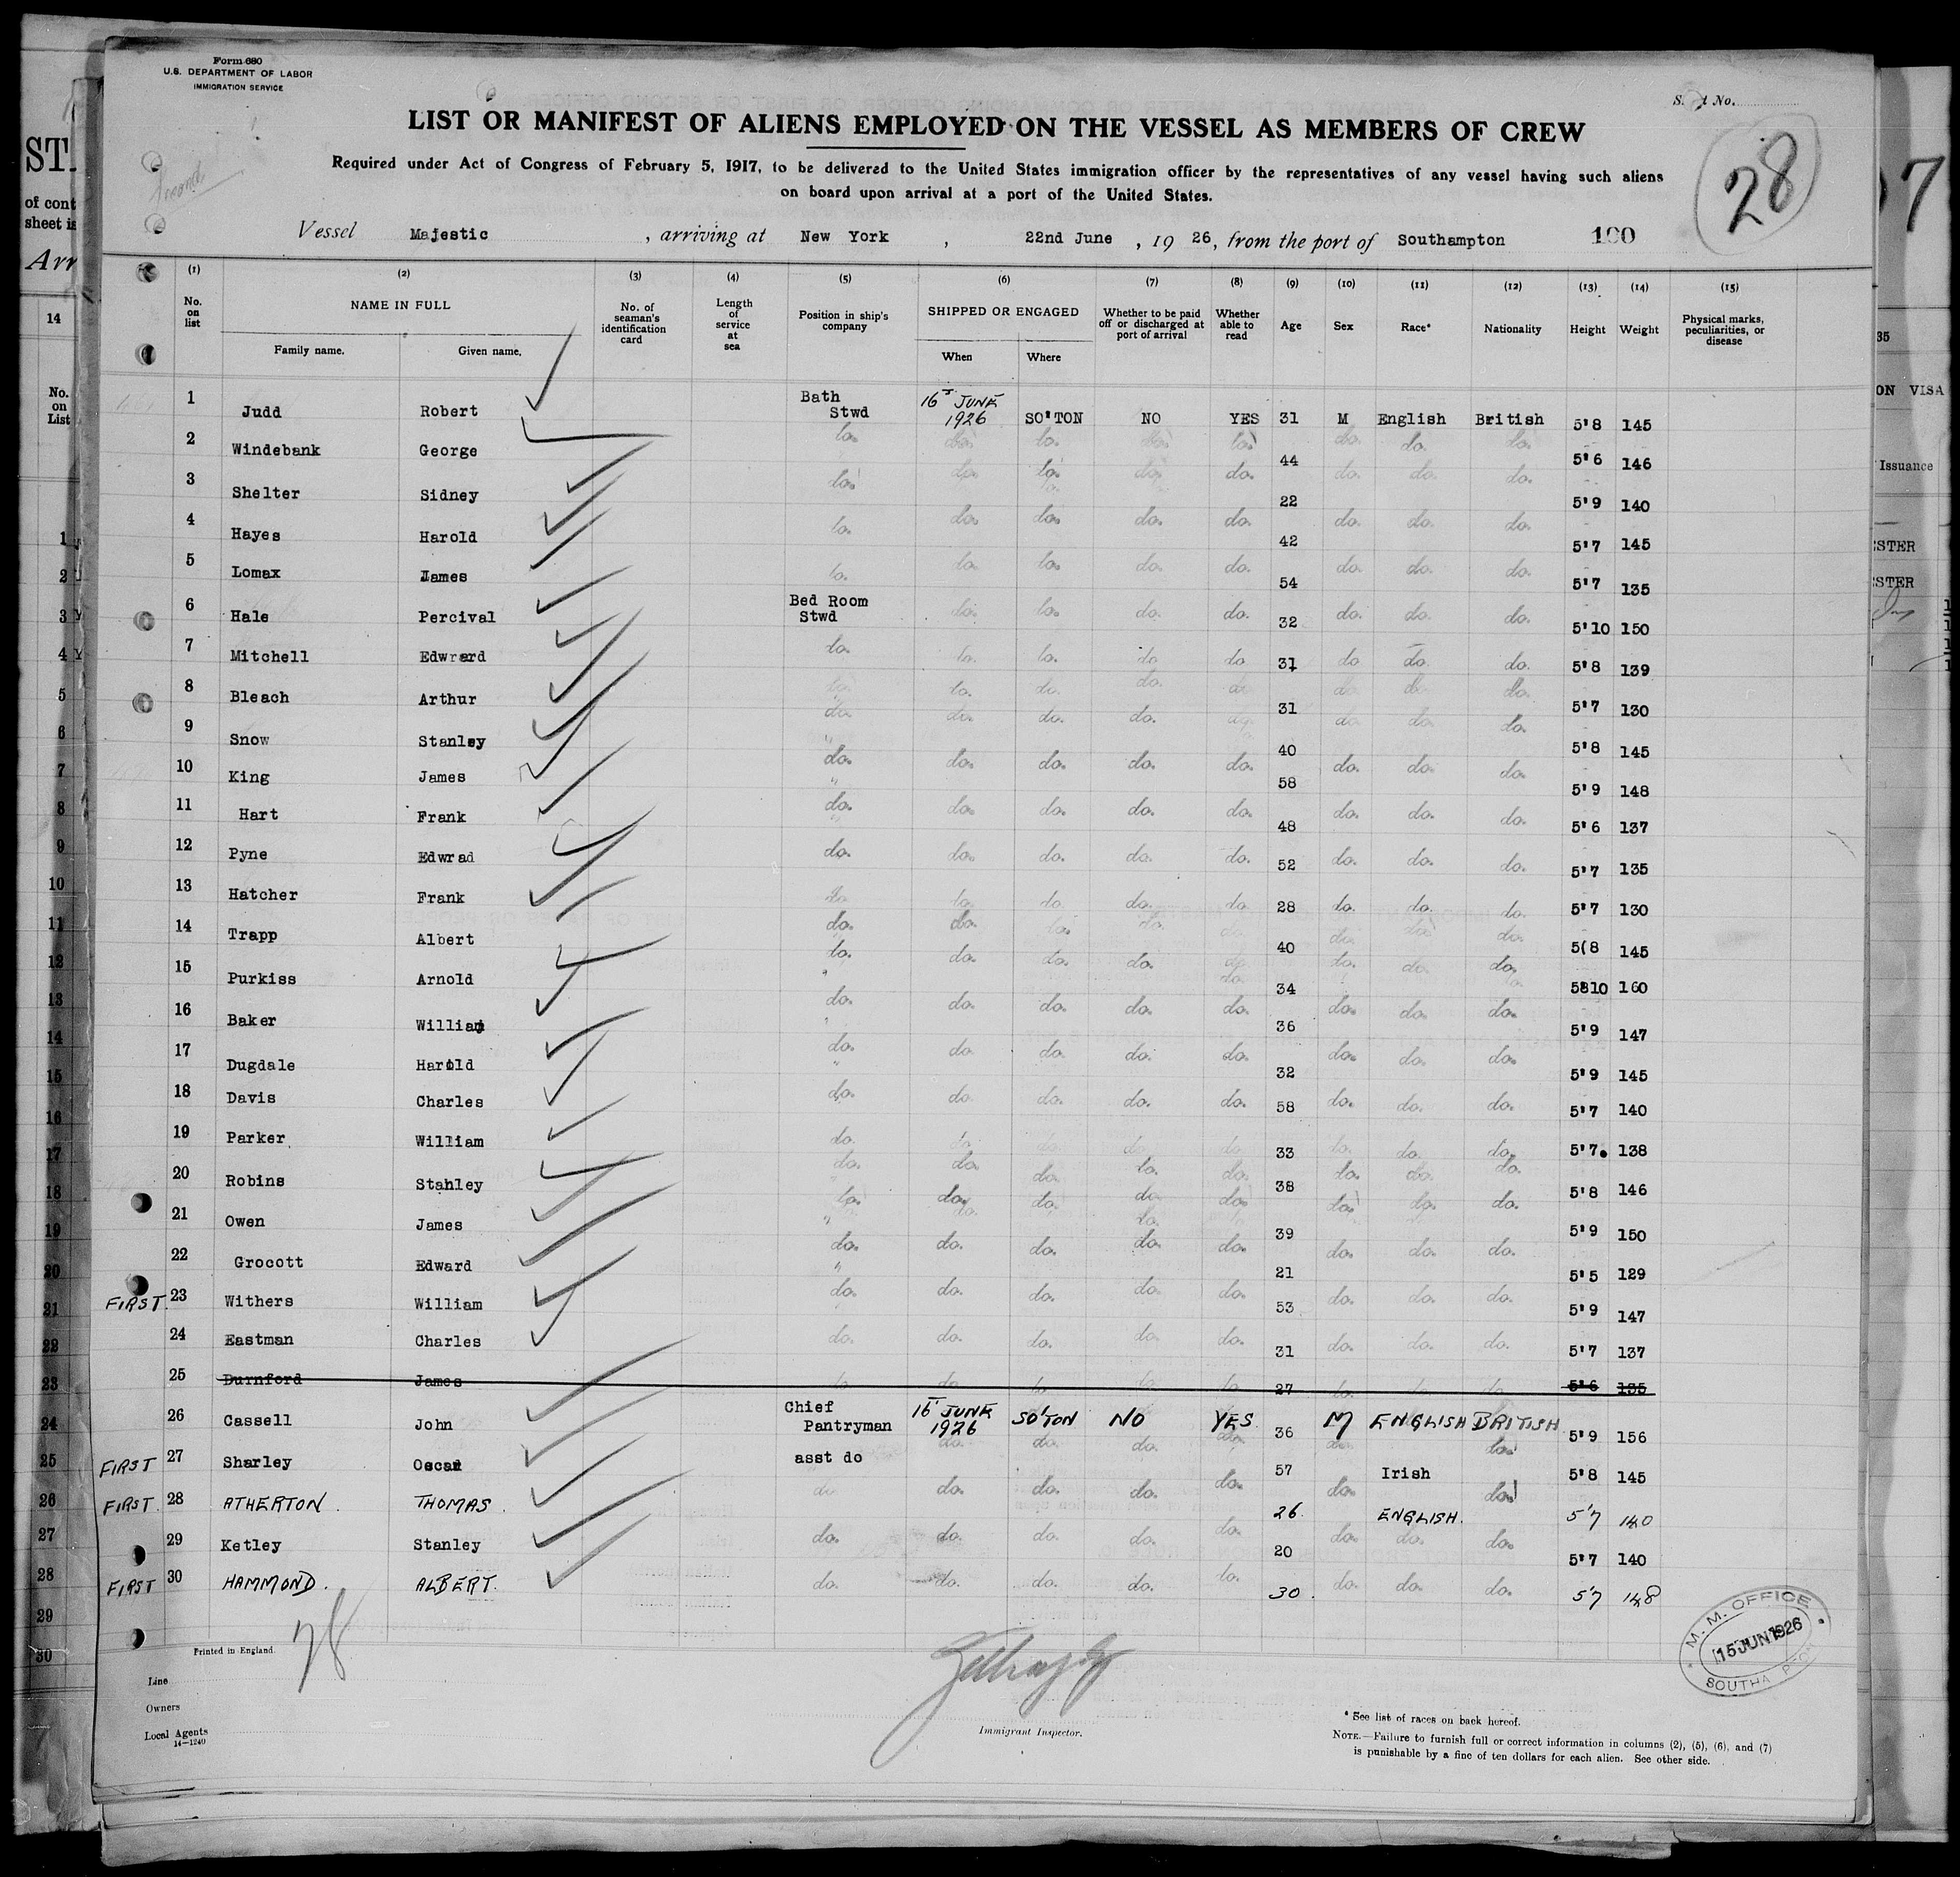 Form 680
U.S. DEPARTMENT OF LABOR
IMMIGRATION SERVICE
LIST OR MANIFEST OF ALIENS EMPLOYED ON THE VESSEL AS MEMBERS OF CREW
28
Required under Act of Congress of February 5, 1917, to be delivered to the United States immigration officer by the representatives of any vessel having such aliens
on board upon arrival at a port of the United States.
Vessel Majestic, arriving at New York, 22nd June, 19 26, from the port of Southampton 190
(1) (2) (3) (4) (5) (6) (7) (8) (9) (10) (11) (12) (13) (14) (15)
No. on list NAME IN FULL Family name. Given name. No. of seaman's identification card Length of service at sea Position in ship's company SHIPPED OR ENGAGED When Where Whether to be paid off or discharged at port of arrival Whether able to read Age Sex Race* Nationality Height Weight Physical marks, peculiarities, or disease
1 Judd Robert Bath Stwd 16th JUNE 1926 SO'TON NO YES 31 M English British 5'8 145
2 Windebank George do. do. do. do. do. 44 do. do. do. 5'6 146
3 Shelter Sidney do. do. do. do. do. 22 do. do. do. 5'9 140
4 Hayes Harold do. do. do. do. do. 42 do. do. do. 5'7 145
5 Lomax James do. do. do. do. do. 54 do. do. do. 5'7 135
6 Hale Percival Bed Room Stwd do. do. do. do. 32 do. do. do. 5'10 150
7 Mitchell Edwrard do. do. do. do. do. 31 do. do. do. 5'8 139
8 Bleach Arthur do. do. do. do. do. 31 do. do. do. 5'7 130
9 Snow Stanley do. do. do. do. do. 40 do. do. do. 5'8 145
10 King James do. do. do. do. do. 58 do. do. do. 5'9 148
11 Hart Frank do. do. do. do. do. 48 do. do. do. 5'6 137
12 Pyne Edwrad do. do. do. do. do. 52 do. do. do. 5'7 135
13 Hatcher Frank do. do. do. do. do. 28 do. do. do. 5'7 130
14 Trapp Albert do. do. do. do. do. 40 do. do. do. 5(8 145
15 Purkiss Arnold do. do. do. do. do. 34 do. do. do. 5810 160
16 Baker William do. do. do. do. do. 36 do. do. do. 5'9 147
17 Dugdale Harold do. do. do. do. do. 32 do. do. do. 5'9 145
18 Davis Charles do. do. do. do. do. 58 do. do. do. 5'7 140
19 Parker William do. do. do. do. do. 33 do. do. do. 5'7. 138
20 Robins Stanley do. do. do. do. do. 38 do. do. do. 5'8 146
21 Owen James do. do. do. do. do. 39 do. do. do. 5'9 150
22 Grocott Edward do. do. do. do. do. 21 do. do. do. 5'5 129
FIRST. 23 Withers William do. do. do. do. do. 53 do. do. do. 5'9 147
24 Eastman Charles do. do. do. do. do. 31 do. do. do. 5'7 137
25 Durnford James do. do. do. do. do. 27 do. do. do. 5'6 135
26 Cassell John Chief Pantryman 16th JUNE 1926 SO'TON NO YES 36 M ENGLISH BRITISH 5'9 156
FIRST 27 Sharley Oscar asst do do. do. do. do. 57 do. Irish do. 5'8 145
FIRST. 28 ATHERTON. THOMAS. do. do. do. do. do. 26. do. ENGLISH. do. 5'7 140
29 Ketley Stanley do. do. do. do. do. 20 do. do. do. 5'7 140
FIRST 30 HAMMOND. ALBERT. do. do. do. do. do. 30. do. do. do. 5'7 148
Printed in England.
Line
Owners
Local Agents
14—1240
Immigrant Inspector.
M. M. OFFICE
15 JUN 1926
* See list of races on back hereof.
NOTE.—Failure to furnish full or correct information in columns (2), (5), (6), and (7)
is punishable by a fine of ten dollars for each alien. See other side.